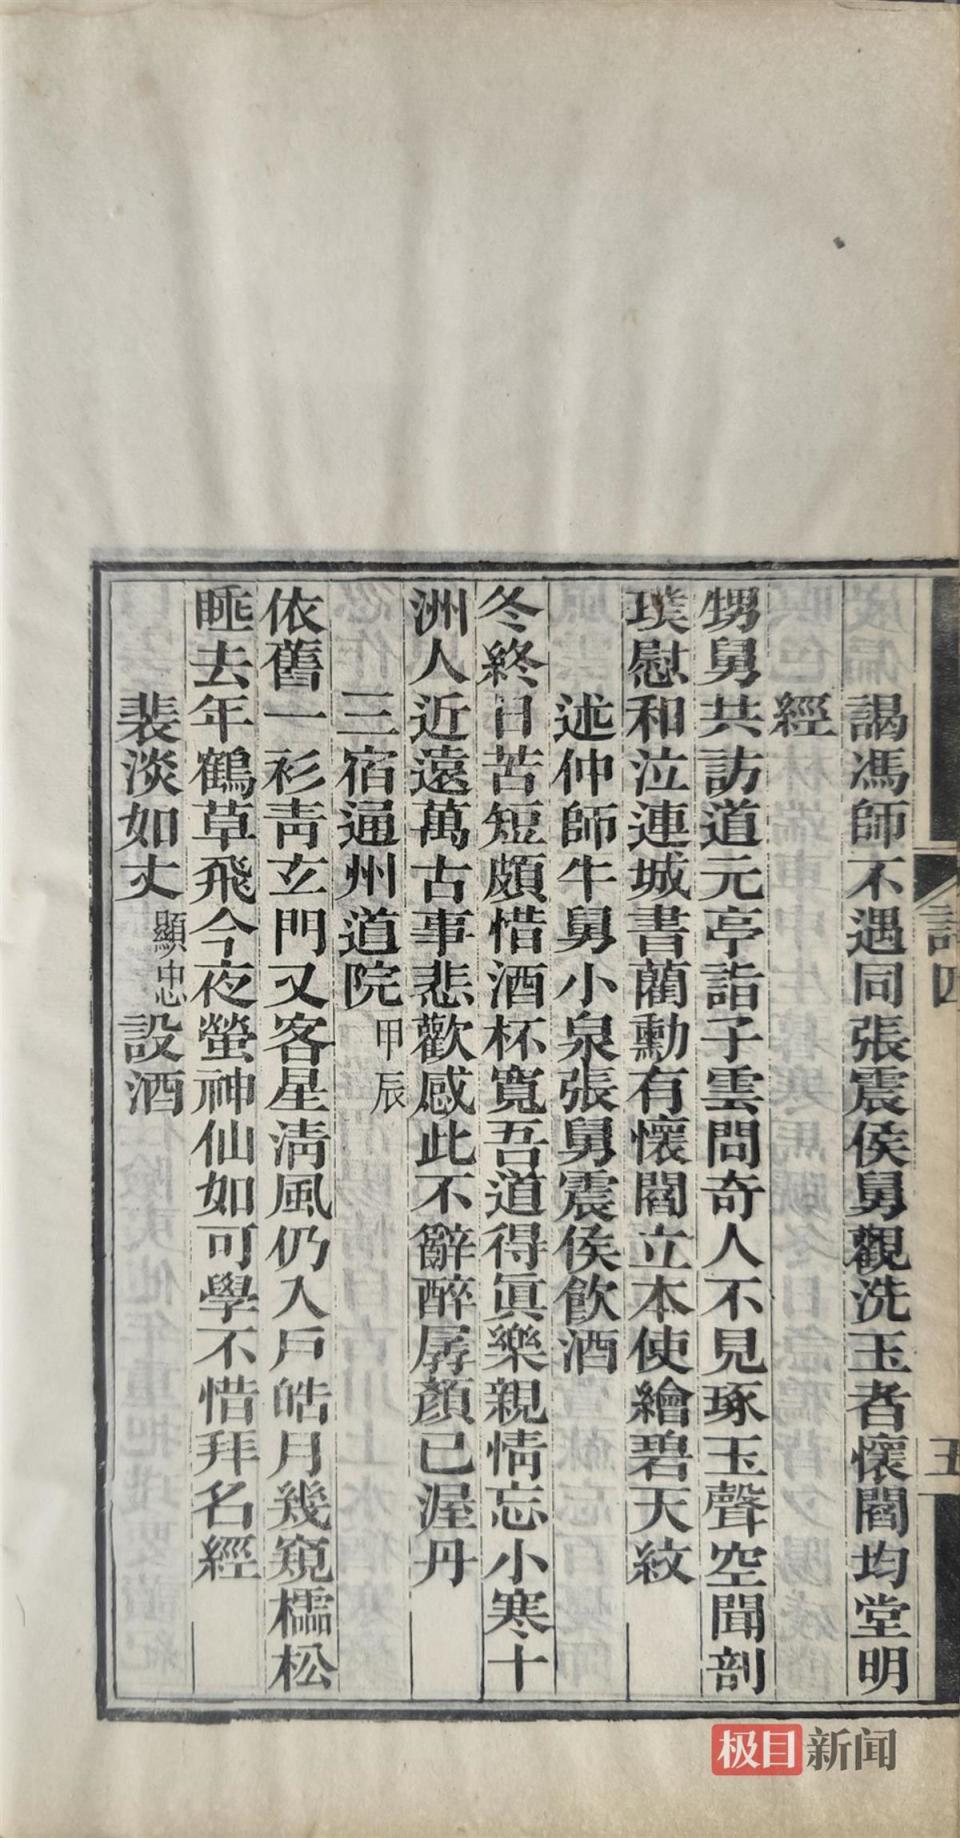 謁馮師不遇同張震侯舅觀洗玉者懷閻均堂明
經
甥舅共訪道元亭詣子雲問奇人不見琢玉聲空聞剖
璞慰和泣連城書藺勳有懷閻立本使繪碧天紋
述仲師牛舅小泉張舅震侯飲酒
冬終日苦短頗惜酒杯寬吾道得眞樂親情忘小寒十
洲人近遠萬古事悲歡感此不辭醉孱顏已渥丹
三宿通州道院甲辰
依舊一衫靑玄門又客星淸風仍入戶皓月幾窺櫺松
睡去年鶴草飛今夜螢神仙如可學不惜拜名經
裴淡如丈顯忠設酒
詩四
五
极目新闻